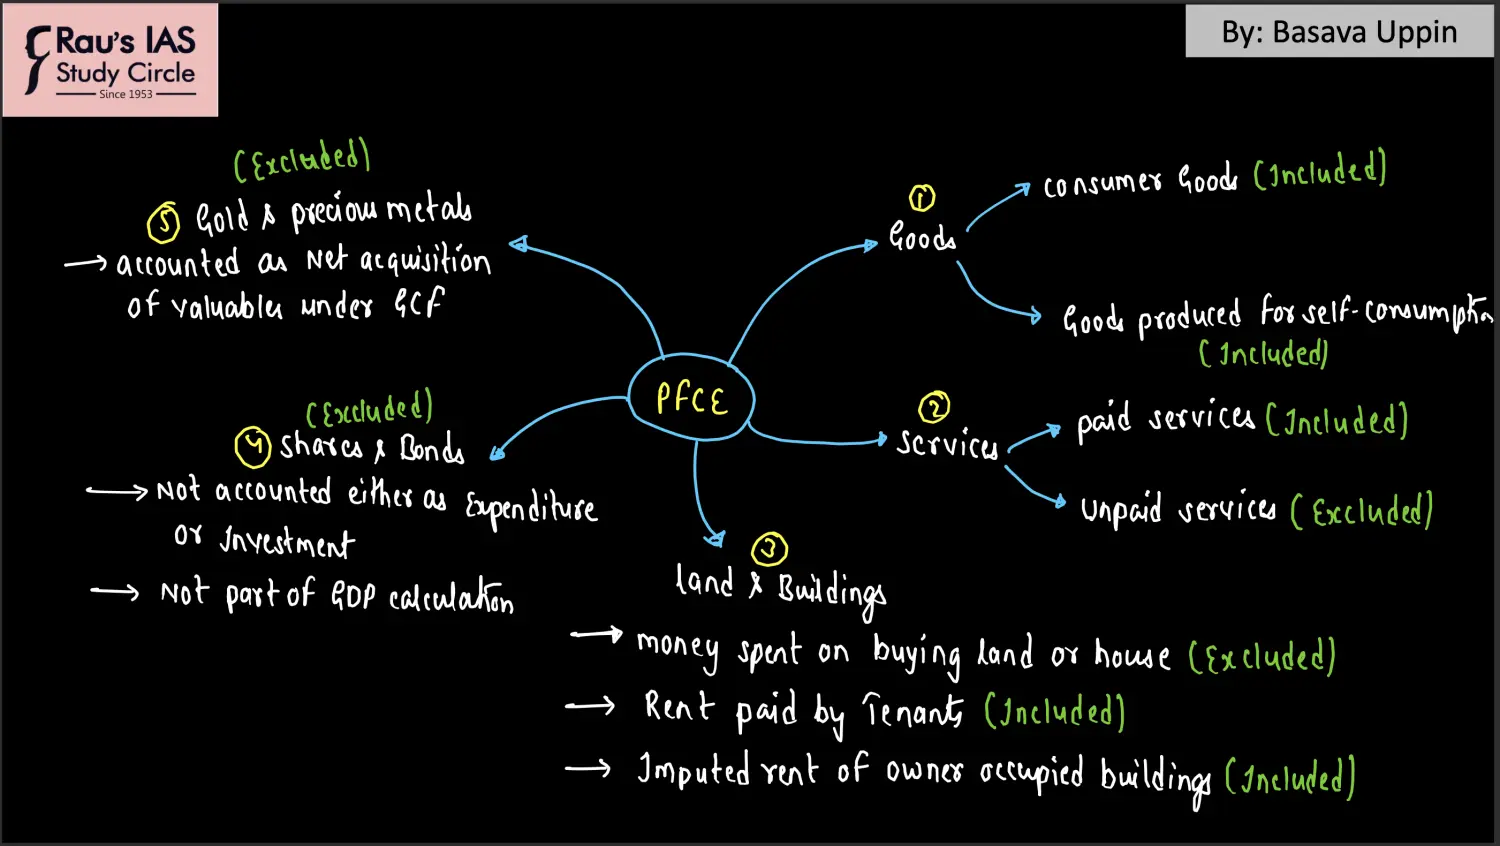 Rau's IAS
Study Circle
Since 1953
By: Basava Uppin
PFCE
1
Goods
consumer Goods (Included)
Goods produced for self-consumption
(Included)
2
Services
paid services (Included)
unpaid services (Excluded)
3
Land & Buildings
→ money spent on buying land or house (Excluded)
→ Rent paid by Tenants (Included)
→ Imputed rent of owner occupied buildings (Included)
(Excluded)
4 Shares & Bonds
→ Not accounted either as Expenditure
or Investment
→ Not part of GDP calculation
(Excluded)
5 Gold & precious metals
→ accounted as Net acquisition
of valuables under GCF